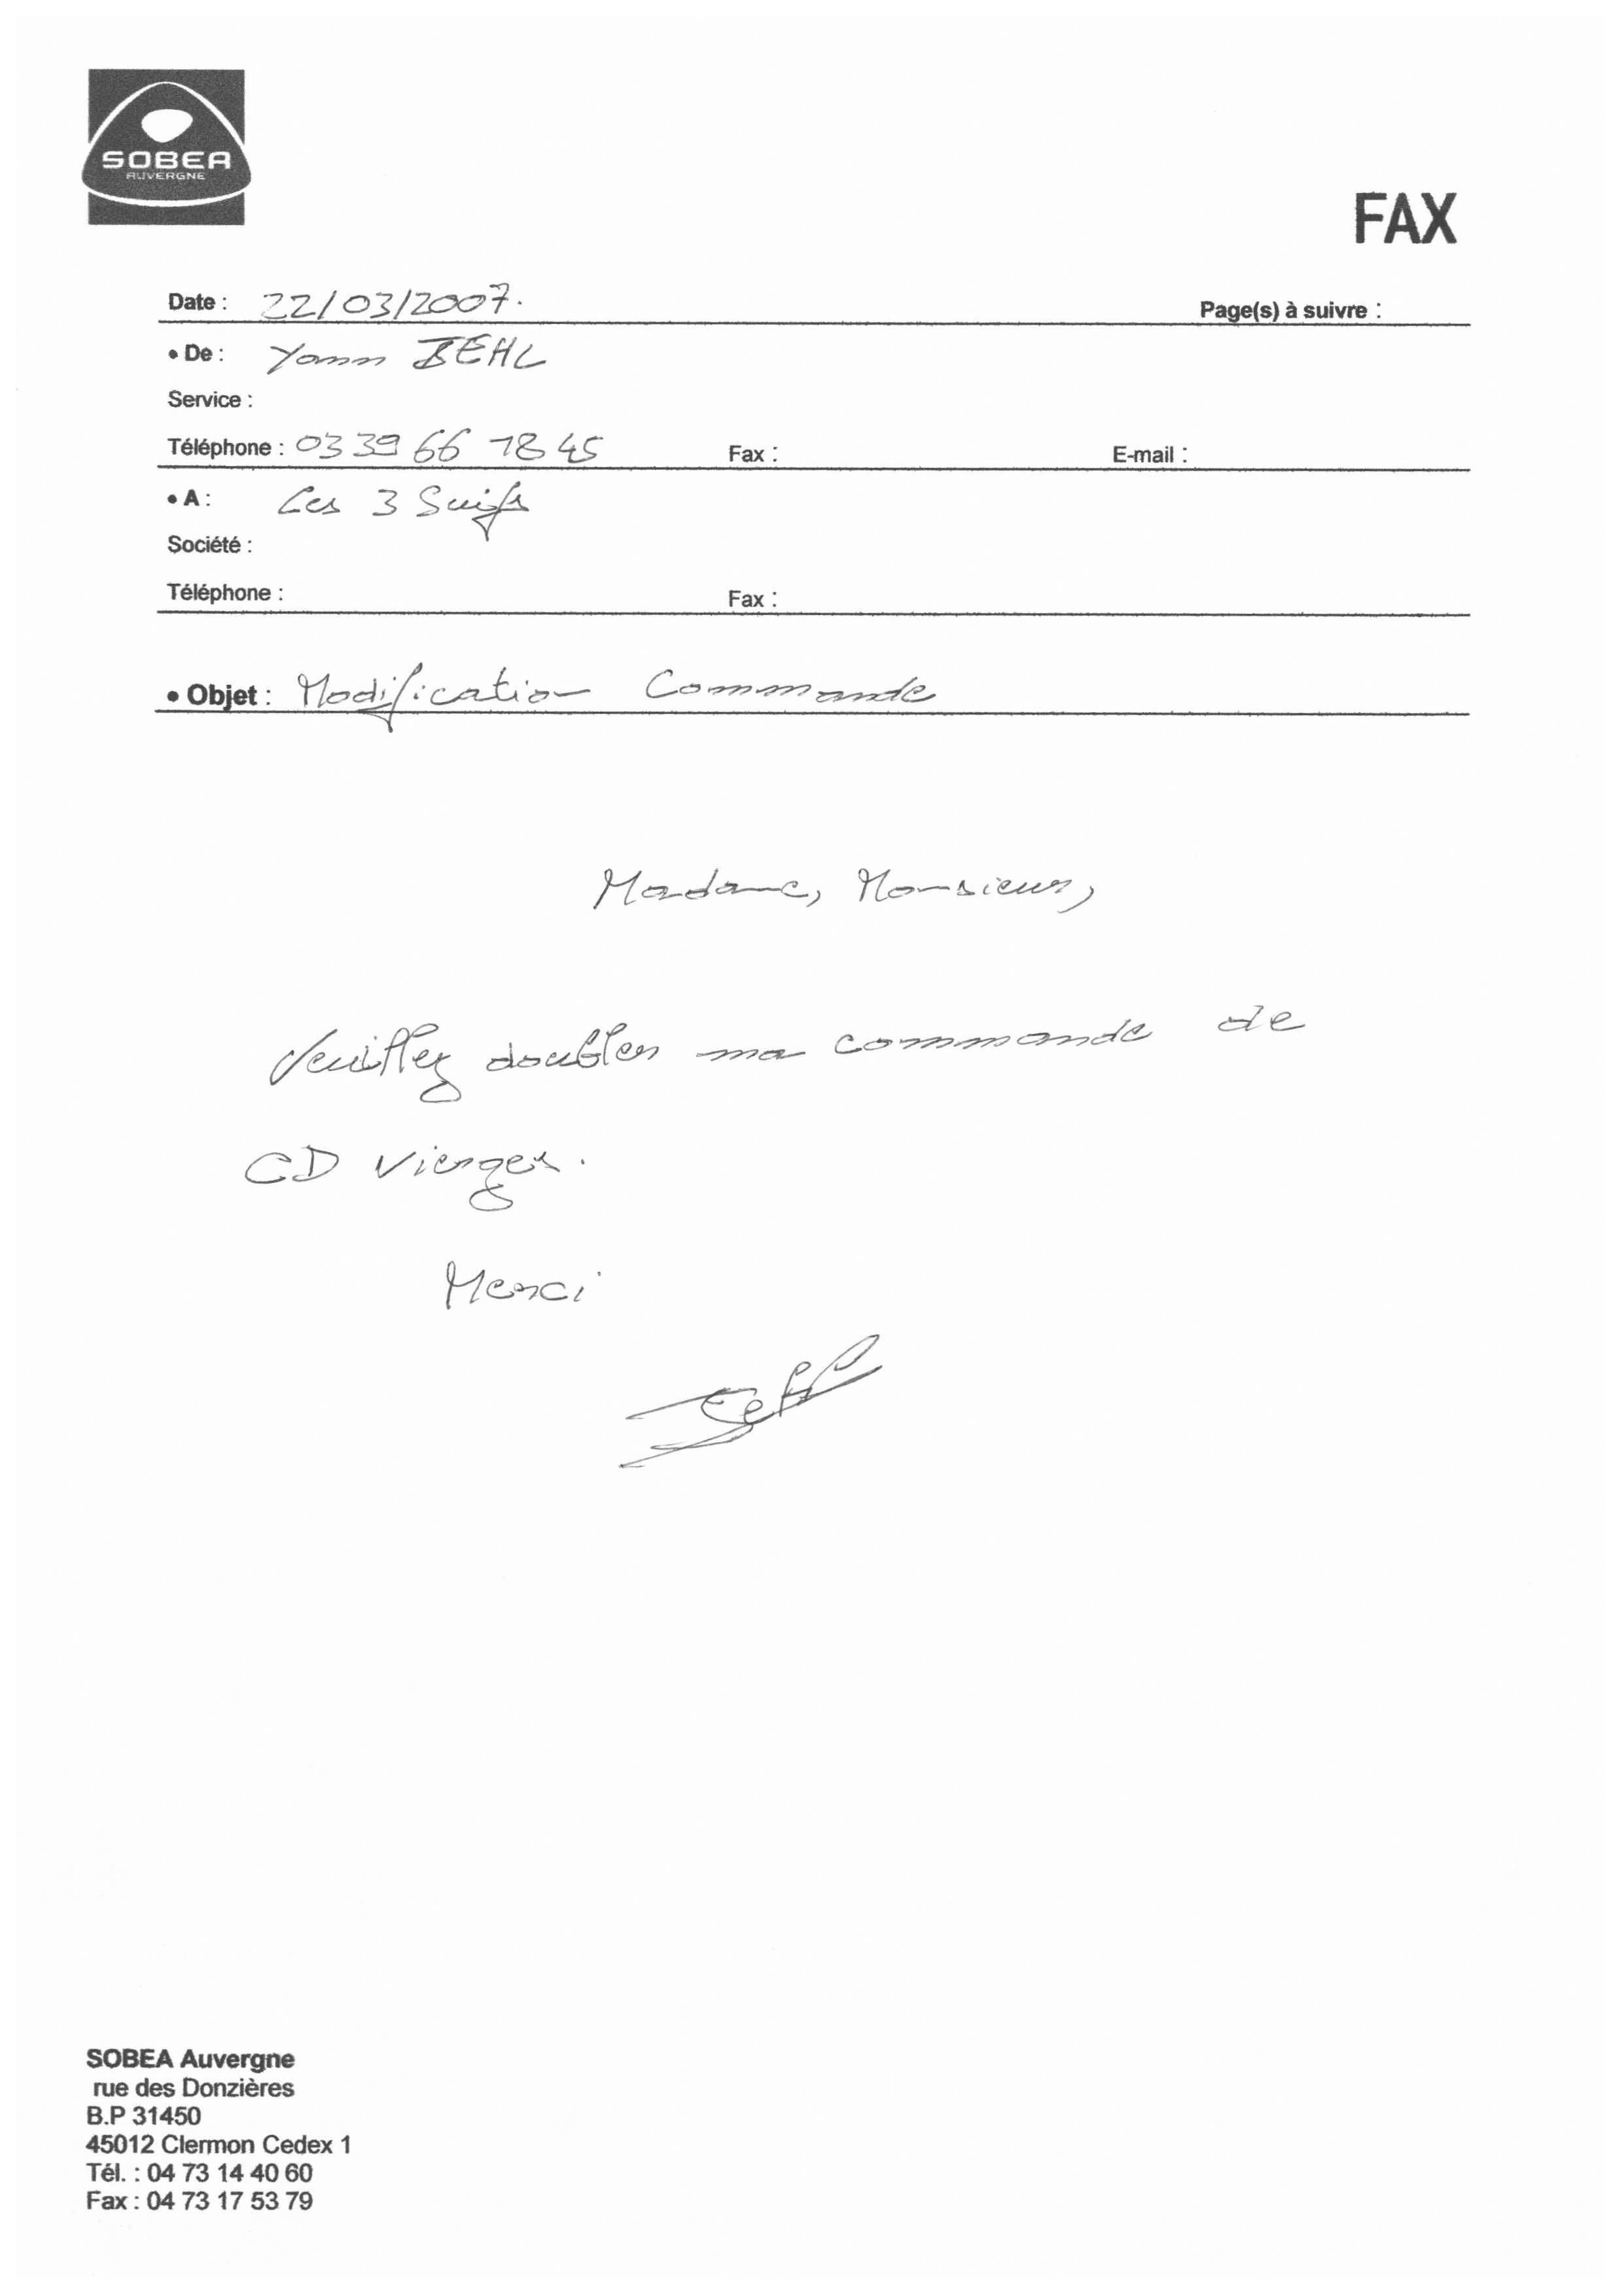 SOBEA
AUVERGNE
FAX
Date : 22/03/2007.
Page(s) à suivre :
• De : Yann BEHL
Service :
Téléphone : 03 39 66 78 45 Fax : E-mail :
• A : Les 3 Suisses
Société :
Téléphone : Fax :
• Objet : Modification Commande
Madame, Monsieur,
Veuillez doubler ma commande de
CD Vierges.
Merci
Behl
SOBEA Auvergne
rue des Donzières
B.P 31450
45012 Clermon Cedex 1
Tél. : 04 73 14 40 60
Fax : 04 73 17 53 79